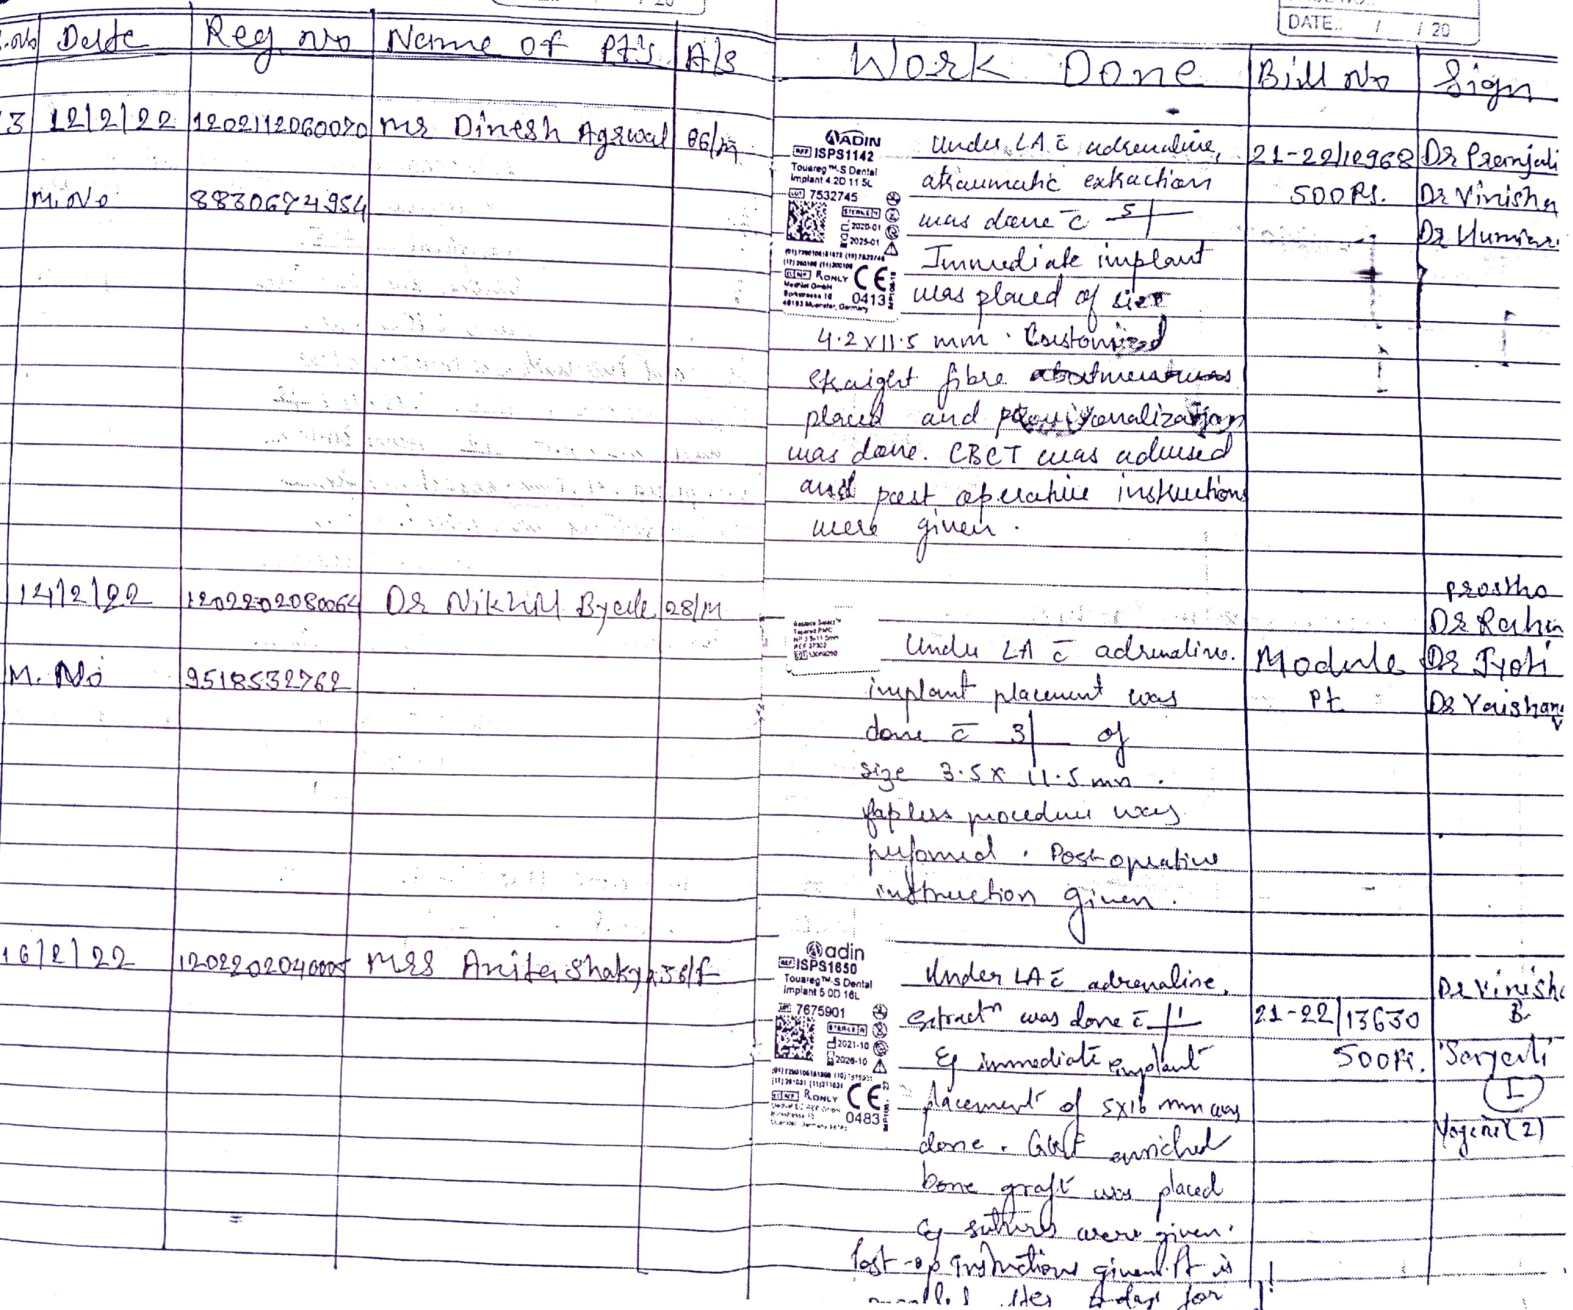 DATE.. / / 20
Date Reg No Name of Pt's A/S Work Done Bill No Sign
3 12/2/22 1202112060070 Mr Dinesh Agrwal 86/M
M.No 8830674954
ADIN
REF ISPS1142
Touareg™-S Dental
Implant 4.2D 11.5L
LOT 7532745
STERILE R
2020-01
2025-01
R ONLY
CE
0413
Under LA c̄ adrenaline,
atraumatic extraction
was done c̄ 5
Immediate implant
was placed of size
4.2 x 11.5 mm. Customized
straight fibre abutment was
placed and provisionalization
was done. CBCT was advised
and post operative instructions
were given.
21-22/12968
500Rs.
Dr Pranjali
Dr Vinisha
14/2/22 1202202080064 Dr Nikhil Byale 28/M
M. No 9518532762
Under LA c̄ adrenaline.
implant placement was
done c̄ 3 of
size 3.5 x 11.5 mm.
flapless procedure was
performed. Post-operative
instruction given.
Module
Pt
Prostho
Dr Jyoti
16/2/22 Mrs Anita Shakya 36/f
adin
REF ISPS1650
Touareg™-S Dental
Implant 5.0D 16L
7675901
STERILE R
2021-10
2026-10
R ONLY
CE
0483
Under LA c̄ adrenaline,
extractⁿ was done c̄ 1
& immediate implant
placement of 5x16 mm was
done. enriched
bone graft was placed
& sutures were given.
Post-op instructions given. Pt is
days for
21-22/13630
500Rs.
Dr Vinisha
B
I
(2)